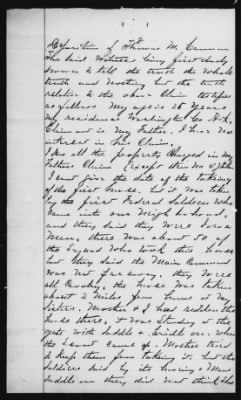 Deposition of Thomas M.
The Said Witness being first duly
sworn to tell the truth the whole
truth and nothing but the truth
relative to the above Claim testifies
as follows My age is 25 years
My residence Washington Co Ark.
Claimant is my Father. I have no
interest in his Claim.
I saw all the property Charged in my
Fathers Claim
I cant give the date of the taking
of the first horse. but it was taken
by the first Federal Soldiers who
came into our neighborhood,
and they said they were Iowa
Men, there was about 50 of
the Squad who took this horse
but they said the Main Command
was not far away. they were
all Cavalry, the horse was taken
about 2 miles from home at my
Sisters. Mother & I had ridden the
horse there, & was standing at the
gate with Saddle & bridle on. when
the Squad came up. Mother tried
to keep them from taking it. but the
Soldiers said by its having a Mans
Saddle on they did not think she